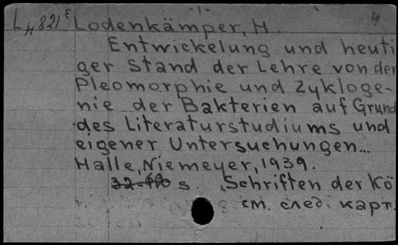 L H 821 Lodenkämper, H.
Entwickelung und heuti
ger Stand der Lehre von der
Pleomorphie und Zykloge-
nie der Bakterien auf Grund
des Literaturstudiums und
eigener Untersuchungen...
Halle, Niemeyer, 1939.
s. Schriften der Kö
см. след. карт.